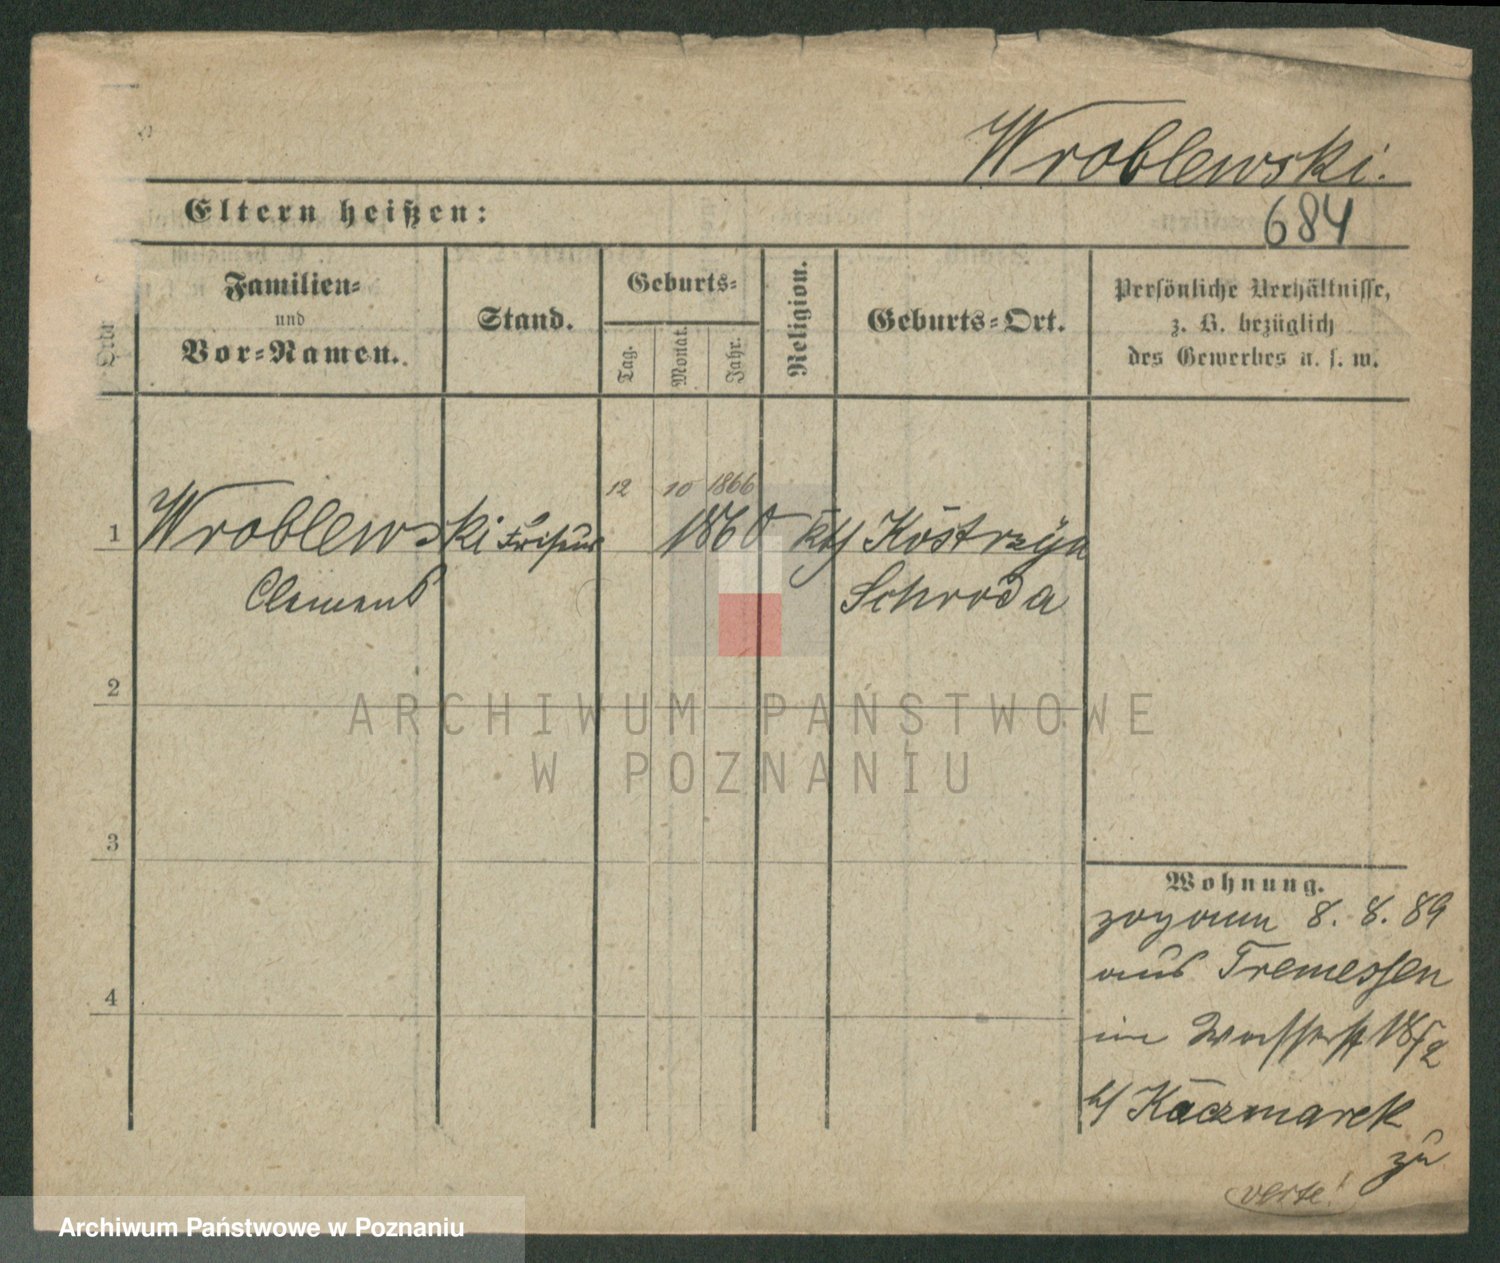 Wroblewski.
Eltern heißen:
684
Familien-
und
Vor-Namen.
Stand.
Geburts-
Tag.
Monat.
Jahr.
Religion.
Geburts-Ort.
Persönliche Verhältnisse,
z. B. bezüglich
des Gewerbes u. s. w.
12 10 1866
1 Wroblewski Friseur 1860 kth Kostrzyn
Clemens Schroda
2
ARCHIWUM PAŃSTWOWE
W POZNANIU
3
Wohnung.
zog an 8. 8. 89
aus Tremessen
4
in Wasserst 18/2
b/ Kaczmarek
zu
verte!
Archiwum Państwowe w Poznaniu